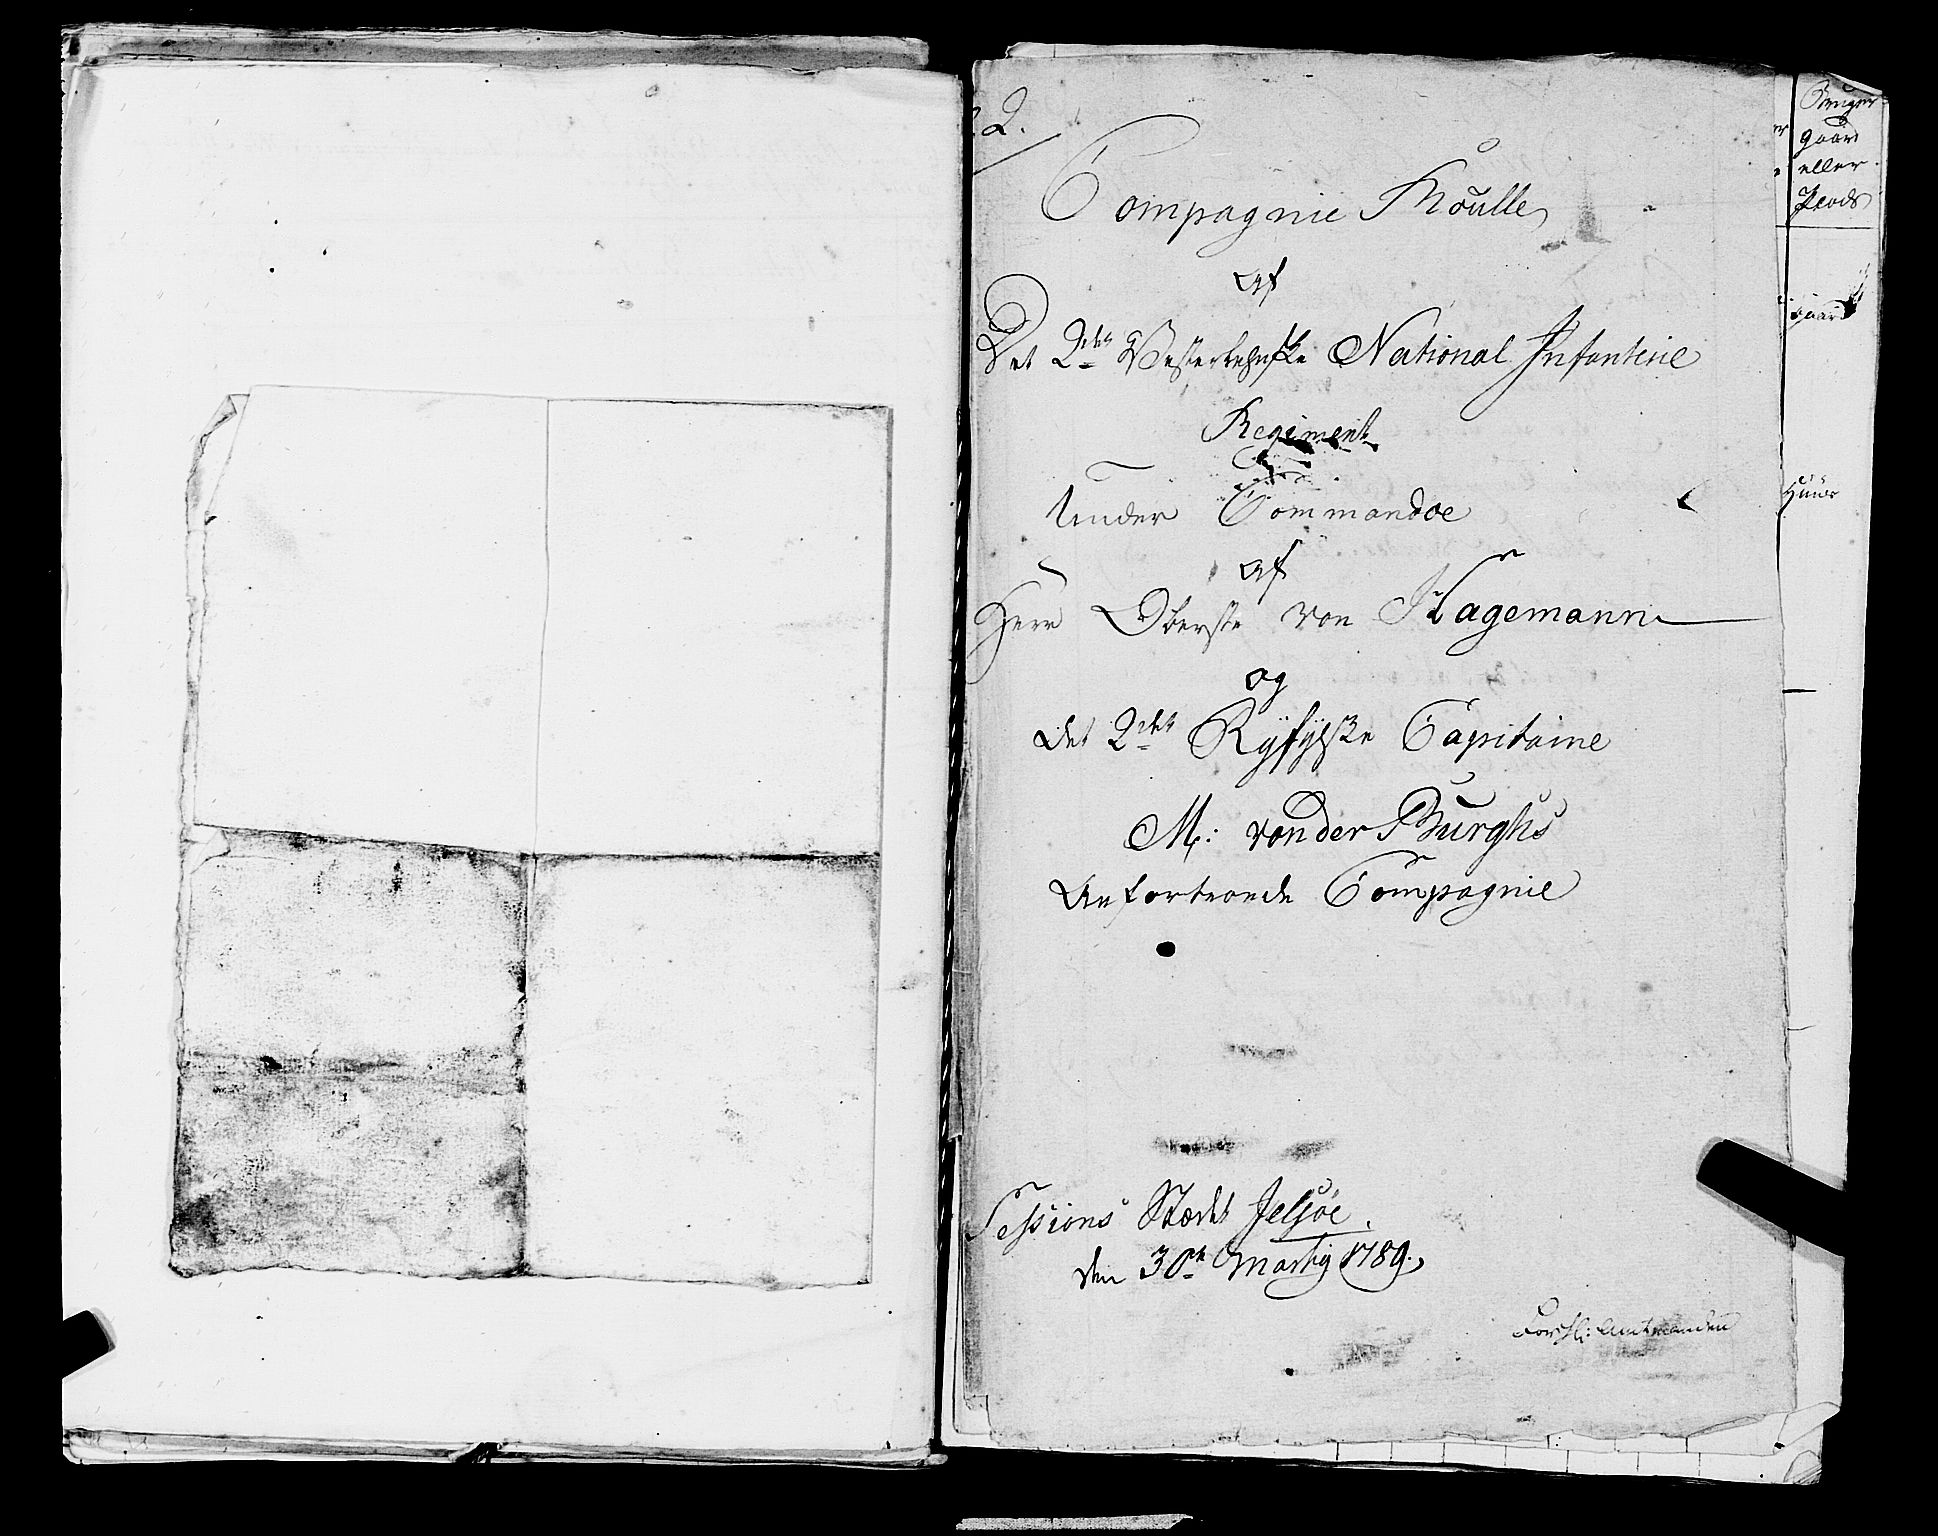 2.
Compagnie Roulle
Af
Det 2det Vesterlehnske National Infanterie
Regiment
Under Commandoe
af
Herr Oberste von Hagemann
og
Det 2det Ryfylske Capitaine
M: von der Burghs
Anfortroede Compagnie
Sessions Stædet Jelsøe.
den 30te Martij 1789.
For Hr: Amtmanden
Bruger
gaard
eller
Plads
gaard
Huus